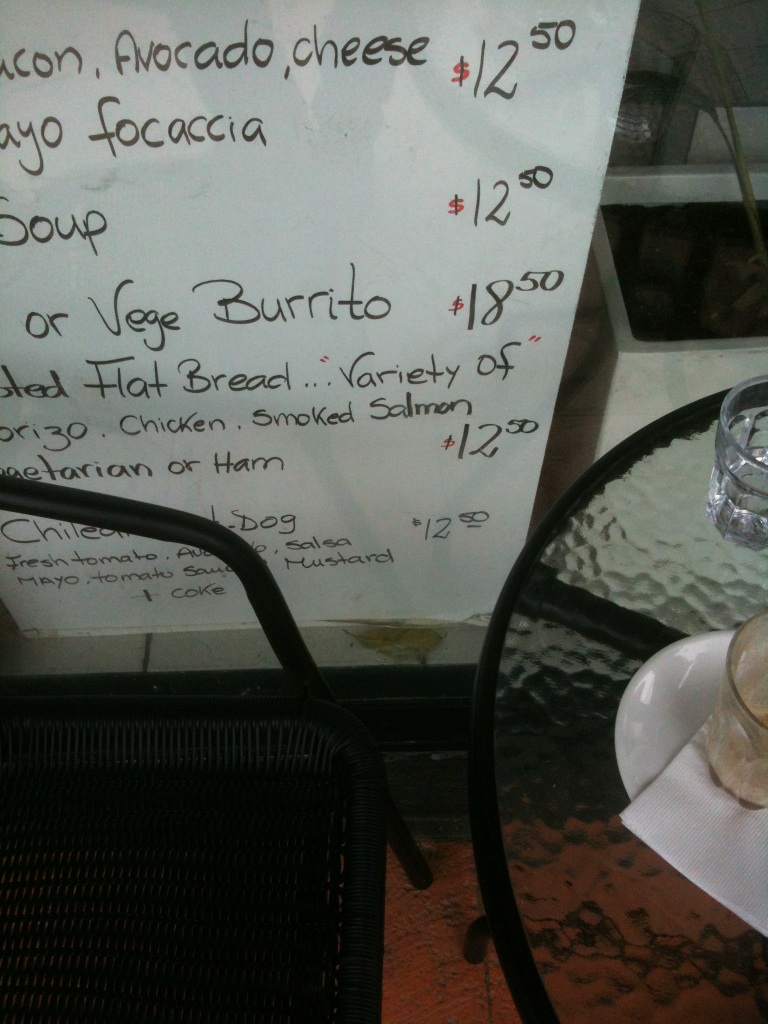 acon, Avocado, cheese $12 50
ayo focaccia
Soup $12 50
or Vege Burrito $18 50
sted Flat Bread... "Variety of"
orizo. Chicken. Smoked Salmon
getarian or Ham $12 50
Chilean t-Dog $12 50
Fresh tomato. Avo o, salsa
MAYO, tomato Sauc Mustard
+ COKE